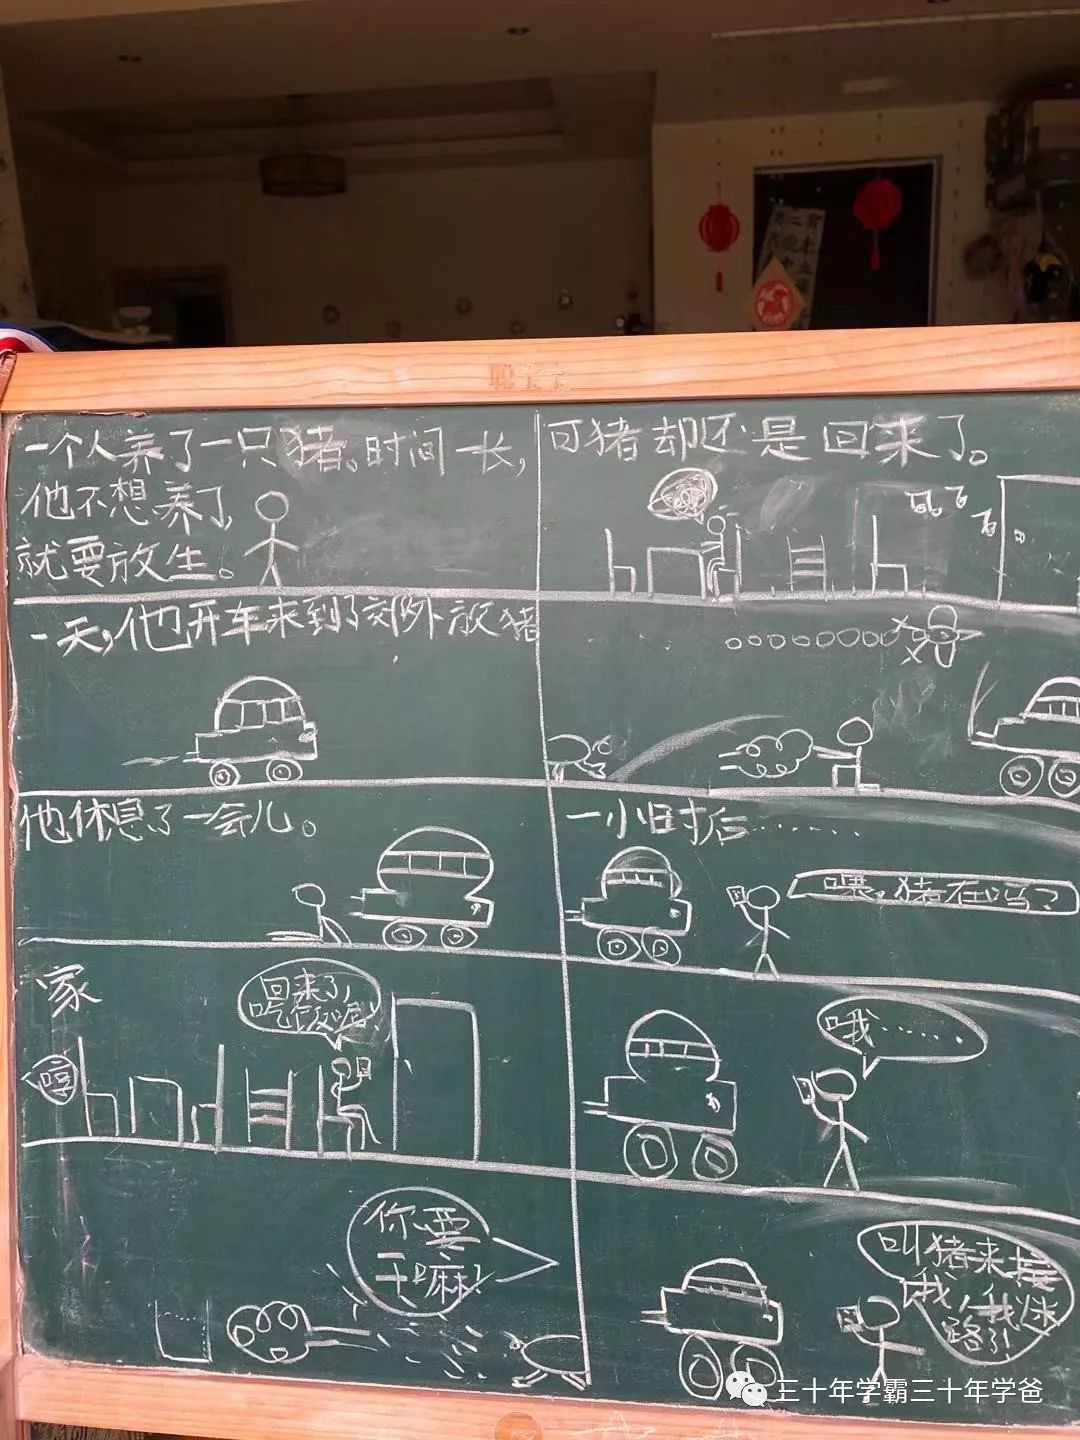 聪宝宝
一个人养了一只猪。时间一长，
他不想养了，
就要放生。
可猪却还是回来了。
一天，他开车来到了郊外放猪
他休息了一会儿。
一小时后………
喂，猪在吗？
家
回来了，
吃饭呢！
哦……
你要
干嘛？
叫猪来接
我，我迷
路了！
三十年学霸三十年学爸